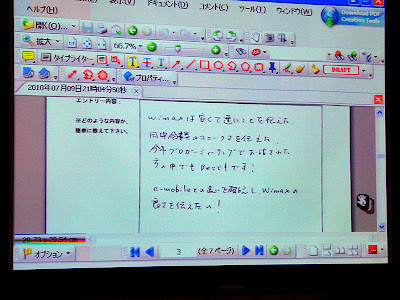 ヘルプ(H) 表示(V) ドキュメント(D) コメント(C) ツール(T) ウィンドウ(W)
Download PDF
Creation Tools
開く(O)...
拡大 66.7%
タイプライター DRAFT
プロパティ...
2010年07月09日21時04分50秒
エントリー内容:
※どのような内容か、
簡単に教えて下さい。
wimaxは安くて速いことを伝えた
今年ブロガーミーティングで
方々の中でもBestです!
e-mobileとの違いを
Wimaxの
良さを伝えたい!
20.73 x 29.54 cm
オプション 3 (全7ページ)